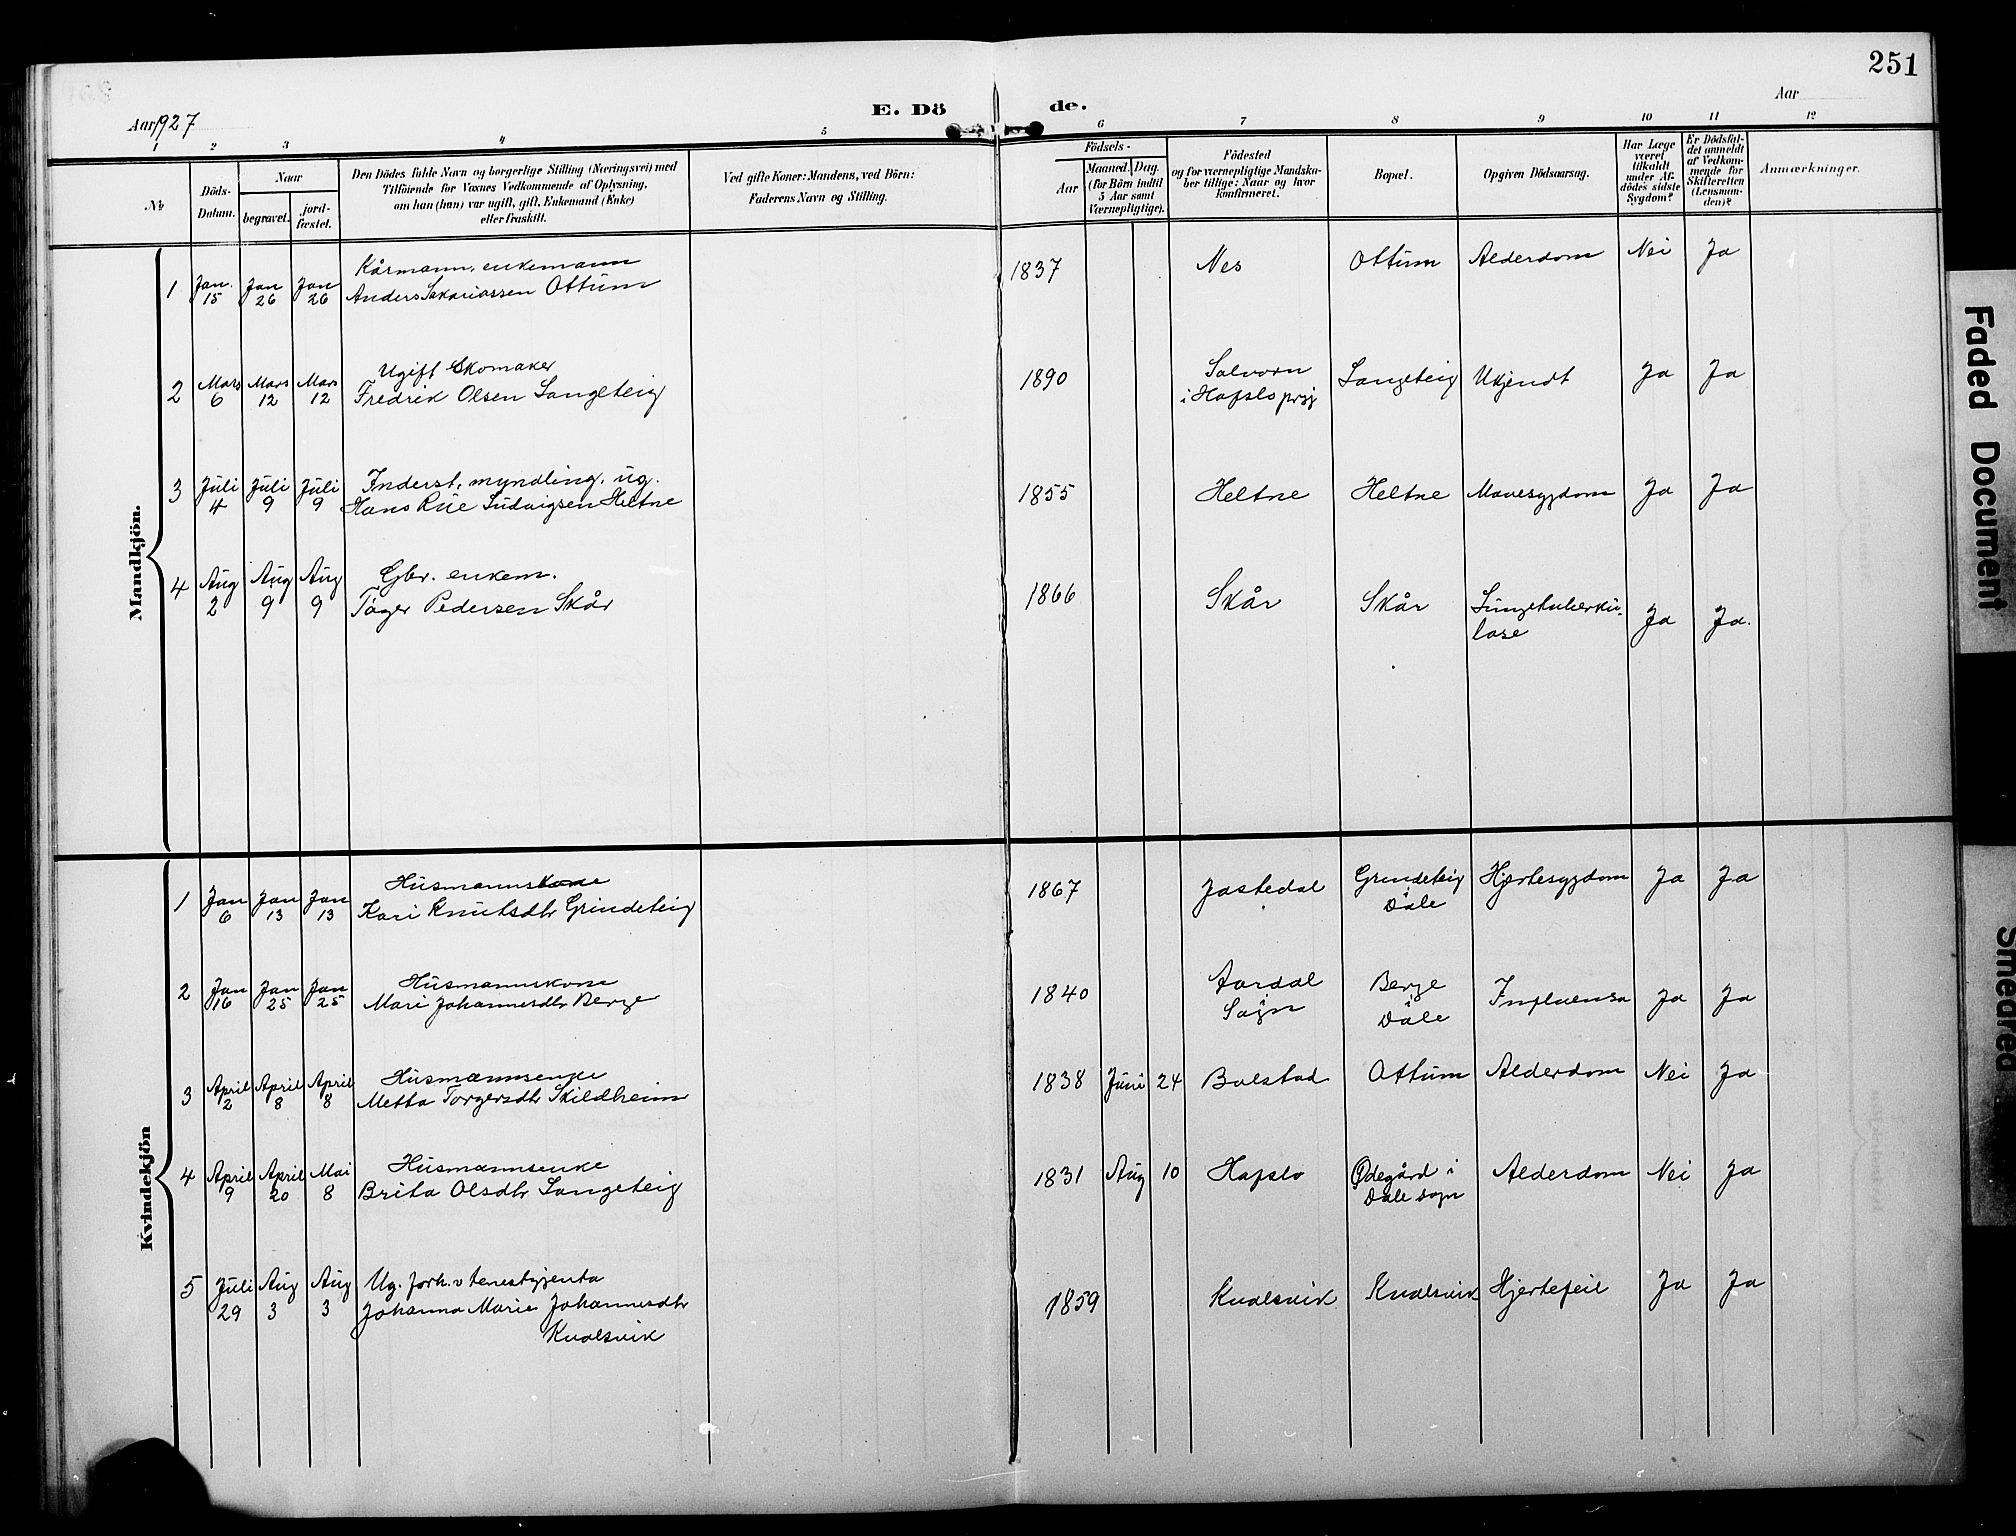 251
E. Döde.
Aar 1927
Aar
1 2 3 4 5 6 7 8 9 10 11 12
No
Döds-Datum.
Naar
begravet.
jord-fæstet.
Den Dödes fulde Navn og borgerlige Stilling (Næringsvei) med
Tilföiende for Voxnes Vedkommende af Oplysning,
om han (hun) var ugift, gift, Enkemand (Enke)
eller fraskilt.
Ved gifte Koner: Mandens, ved Börn:
Faderens Navn og Stilling.
Födsels-
Aar
Maaned. Dag.
(for Börn indtil
5 Aar samt
Værnepligtige).
Födested
og for værnepligtige Mandska-
ber tillige: Naar og hvor
konfirmeret.
Bopæl.
Opgiven Dödsaarsag.
Har Læge
været
tilkaldt
under Af-
dödes sidste
Sygdom?
Er Dödsfal-
det anmeldt
af Vedkom-
mende for
Skifteretten
(Lensman-
den)?
Anmærkninger.
Mandkjön.
1 Jan. 15 Jan 26 Jan 26 Kårmann, enkemann
Anders Sakariassen Ottum 1837 Nes Ottum Alderdom Nei Ja
2 Mars 6 Mars 12 Mars 12 Ugift Skomaker
Fredrik Olsen Langeteig 1890 Solvorn
i Hafslo prgj Langeteig Ukjendt Ja Ja
3 Juli 4 Juli 9 Juli 9 Inderst, myndling, ug.
Hans Rue Ludvigsen Heltne 1855 Heltne Heltne Mavesygdom Ja Ja
4 Aug 2 Aug 9 Aug 9 Gbr. enkem.
Tøger Pedersen Skår 1866 Skår Skår Lungetuberku-
lose Ja Ja.
Kvindekjön
1 Jan 6 Jan 13 Jan 13 Husmannskone
Kari Knutsdtr Grindeteig 1867 Jostedal Grindeteig
i
Dale Hjertesygdom Ja Ja
2 Jan 16 Jan 25 Jan 25 Husmannskone
Mari Johannesdtr Berge 1840 Aardal
i
Sogn Berge
i
Dale Influensa Ja Ja
3 April 2 April 8 April 8 Husmannsenke
Metta Torgersdtr Skildheim 1838 Juni 24 Bolstad Ottum Alderdom Nei Ja
4 April 9 April 20 Mai 8 Husmannsenke
Brita Olsdtr Langeteig 1831 Aug 10 Hafslo Ødegård i
Dale sogn Alderdom Nei Ja
5 Juli 29 Aug 3 Aug 3 Ug. forh.v tenestgjenta
Johanna Marie Johannesdtr
Kvalsvik 1859 Kvalsvik Kvalsvik Hjertefeil Ja Ja
Faded Document
Smeared